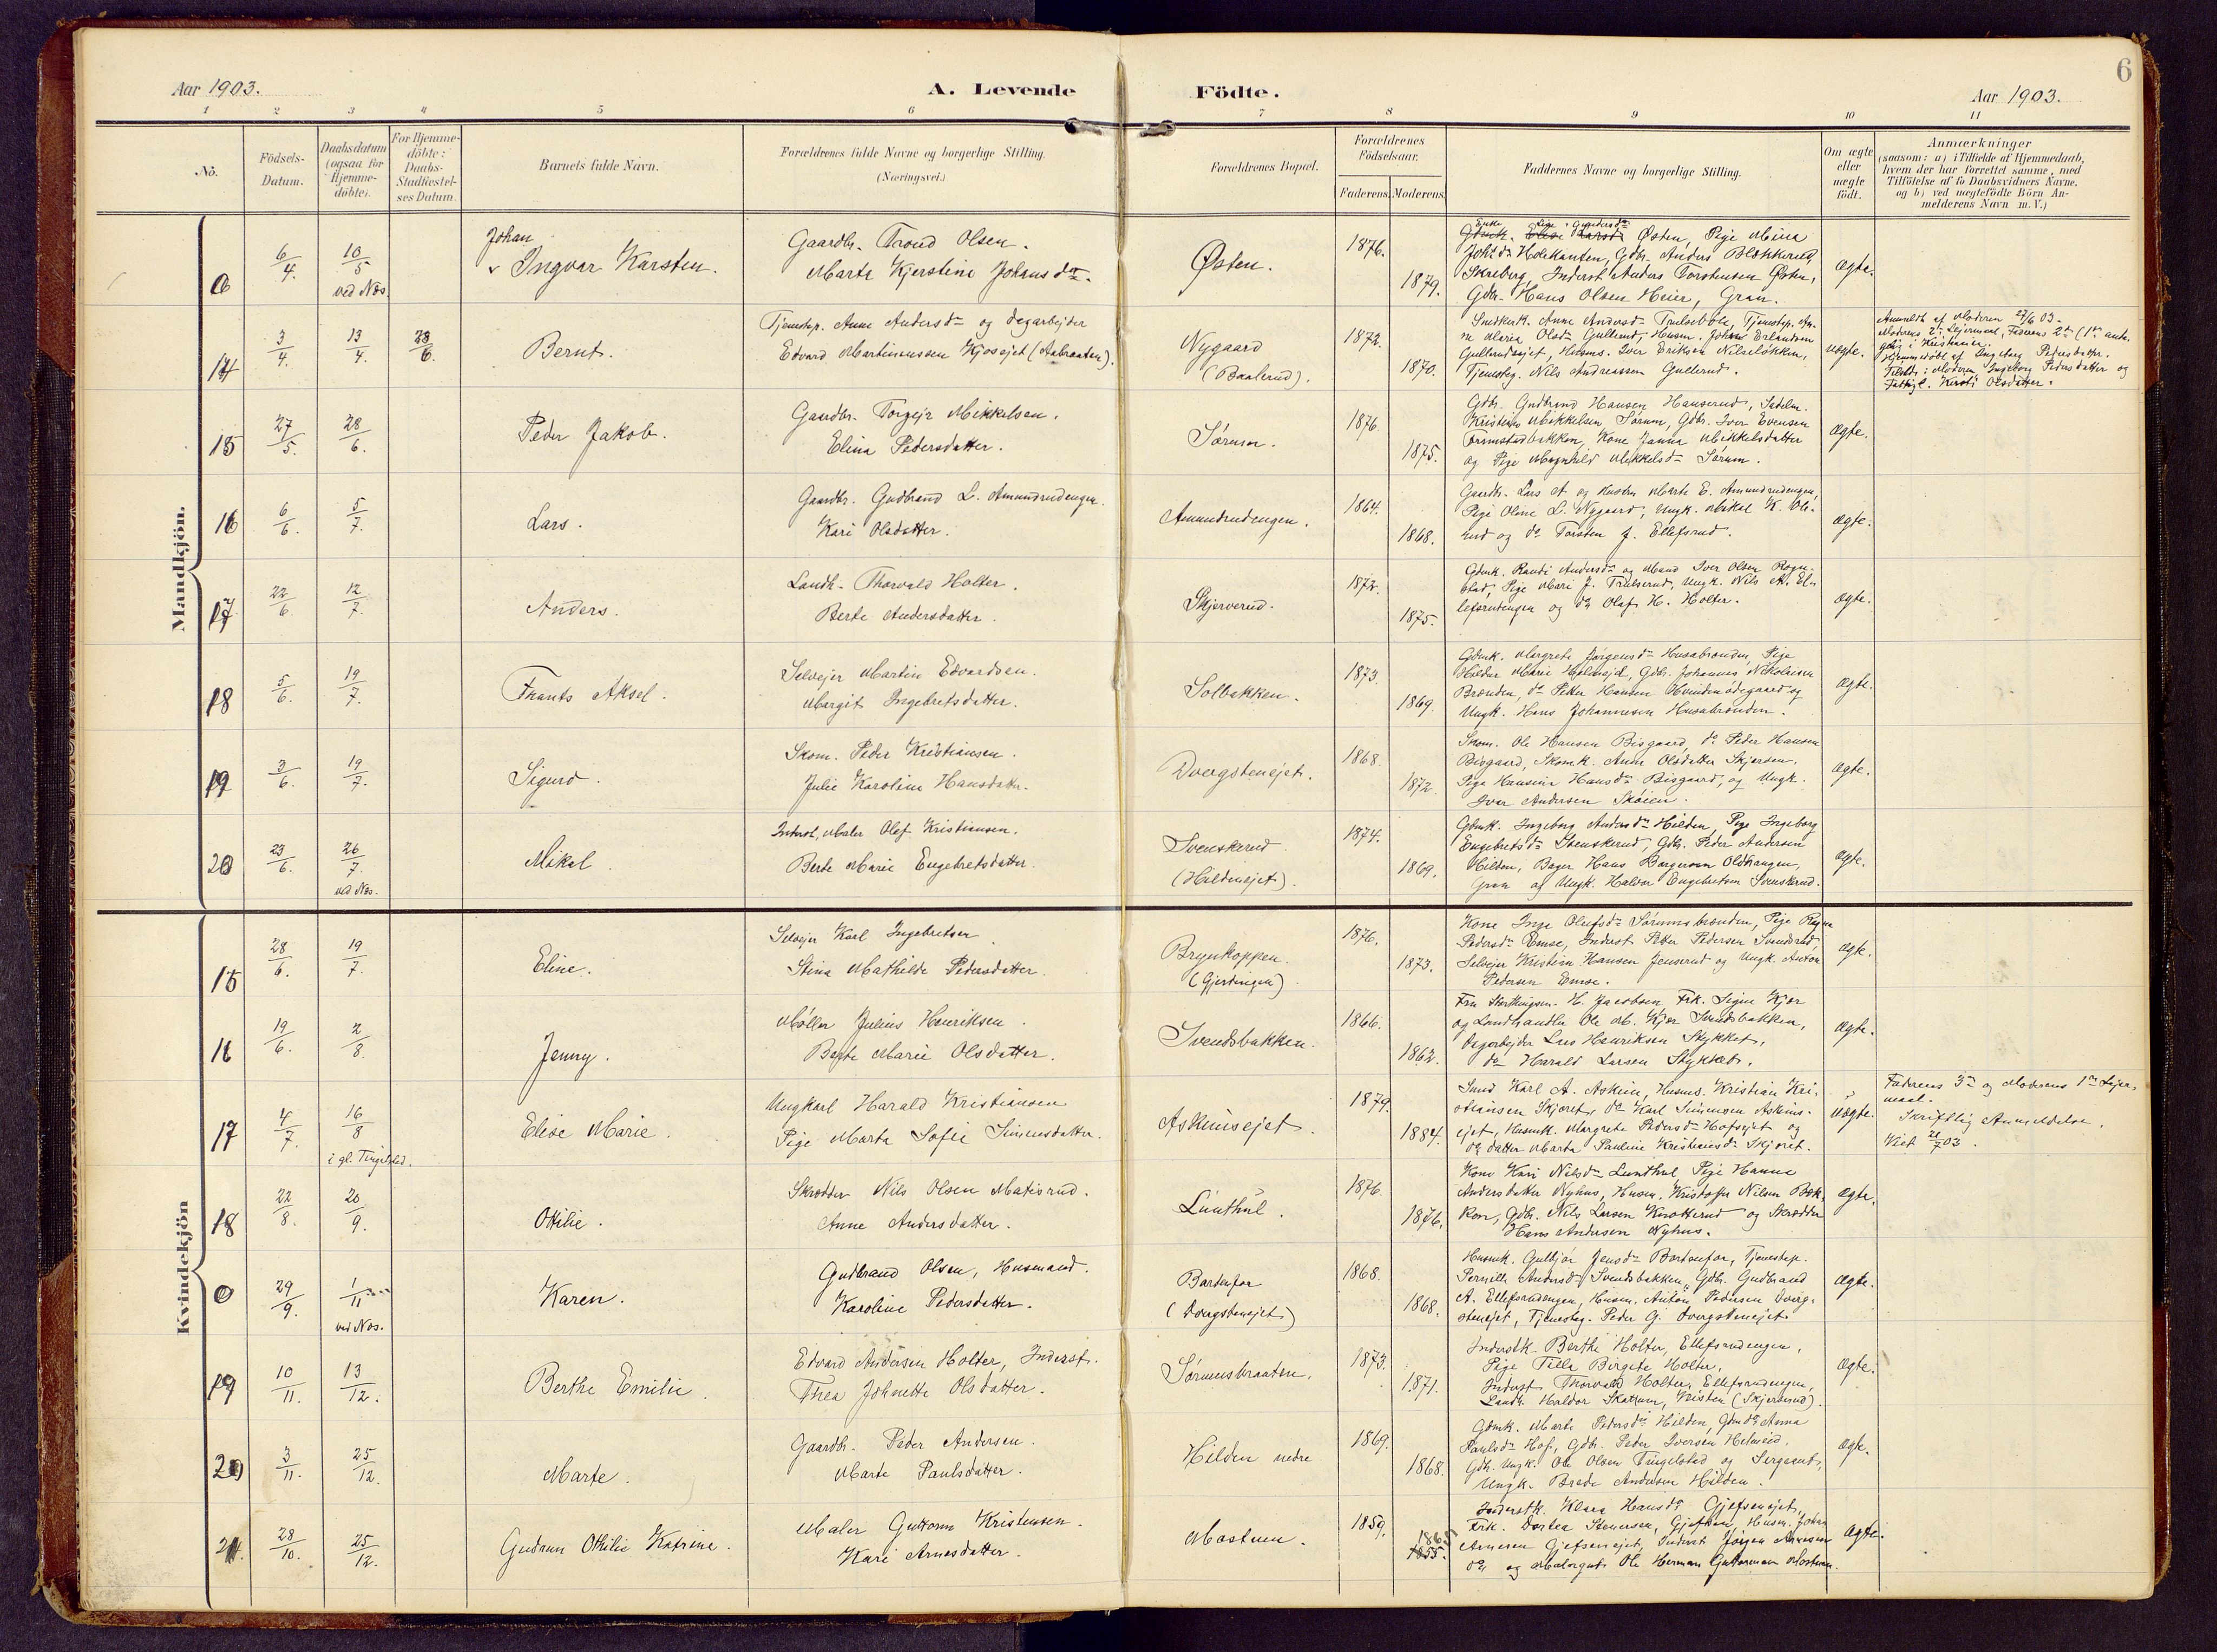 6
Aar 1903.
A. Levende Födte.
Aar 1903.
1 2 3 4 5 6 7 8 9 10 11
No.
Födsels-Datum.
Daabsdatum (ogsaa for Hjemme-döbte).
For Hjemme-döbte: Daabs-Stadfæstel-ses Datum.
Barnets fulde Navn.
Forældrenes fulde Navne og borgerlige Stilling.
(Næringsvei.)
Forældrenes Bopæl.
Forældrenes Födselsaar.
Faderens. Moderens.
Faddernes Navne og borgerlige Stilling.
Om ægte eller uægte födt.
Anmærkninger
(saasom: a) i Tilfælde af Hjemmedaab, hvem der har forrettet samme, med Tilföielse af to Daabsvidners Navne, og b) ved uægtefödte Börn Anmelderens Navn m. V.)
Mandkjön.
0 6/4. 10/5 ved Næs.
Johan Ingvar Karsten.
Gaardbr. Trond Olsen.
Marte Kjerstine Johansdr.
Østen.
1876. 1879.
Østen, Pige Mina
Hans Olsen Heier, Gran.
Ægte.
14 3/4. 13/4. 28/6.
Bernt.
Tjenestep. Anne Andersdr og Dagarbejder
Edvard Martinussen Kjosejet (Aabraaten).
Nygaard
(Baalerud).
1872. 1870.
Tjenesteg. Nils Andreassen Gullerud.
uægte.
Anmeldt af Moderen 27/6 03.
Hjemmedöbt af Ingeborg Pedersdatter.
Tilstede: Moderen Ingeborg Pedersdatter og
Kirsti Olsdatter.
15 27/5. 28/6.
Peder Jakob.
Gaardbr. Torgejr Mikkelsen.
Elina Pedersdatter.
Sörum.
1876. 1875.
Gdbr. Gudbrand Hansen Hanserud, Sadelm.
Kristian Mikkelsen Sörum, Gdbr. Iver Evensen
Framstadbakken, Kone Janna Mikkelsdatter
og Pige Magnhild Mikkelsdr Sörum.
Ægte.
16 6/6. 5/7.
Lars.
Gaardbr. Gudbrand L. Amundrudengen.
Kari Olsdatter.
Amundrudengen.
1864. 1868.
Gaardbr. Lars A. og Kusin Marte E. Amundrudengen,
Pige Oline L. Nygaard, Ungk. Mikal K. Ole-
rud og do Torsten J. Ellefsrud.
Ægte.
17 22/6. 12/7.
Anders.
Landh. Thorvald Holter.
Berte Andersdatter.
Skjerverud.
1872. 1875.
Gdmk. Randi Andersdr og Mand Iver Olsen Rogn-
stad, Pige Mari J. Trulserud, Ungk. Nils A. El-
lefsrudengen og do Olaf H. Holter.
Ægte.
18 5/6. 19/7.
Frants Aksel.
Selvejer Martin Edvardsen.
Margit Ingebretsdatter.
Solbakken.
1873. 1869.
Gdmk. Margrete Jörgensdr Husabrænden, Pige
Gdbr. Johannes Nikolaisen
Brænden, do Peter Hansen
Ungk. Hans Johannesen Husabrænden.
Ægte.
19 3/6. 19/7.
Sigurd.
Skom. Peder Kristiansen.
Julie Karoline Hansdatter.
Dvergstenejet.
1868. 1872.
Skom. Ole Hansen Bisgaard, do Peder Hansen
Bisgaard, Skomk. Anne Olsdatter Skjersen,
Pige Hansine Hansdr Bisgaard, og Ungk.
Iver Andersen Sköien.
Ægte.
20 23/6. 26/7. ved Næs.
Mikal
Inderst, Maler Olaf Kristiansen.
Berte Marie Engebretsdatter.
Svenskerud
(Hildensejet).
1874. 1869.
Gdmk. Ingeborg Andersdr Hilden, Pige Ingeborg
Engebretsdr Svenskerud, Gdbr. Peder Andersen
Hilden, Bager Hans Borgersen Oldhaugen,
Gran og Ungk. Halvor Engebretsen Svenskerud.
Ægte.
Kvindekjön
15 28/6. 19/7.
Eline.
Selvejer Karl Ingebretsen
Stina Mathilde Pedersdatter.
Brynkoppen.
(Gjerdingen).
1876. 1873.
Kone Inga Olufsdr Sörumsbrænden, Pige Ragna
Pedersdr Emse, Inderst Peter Pedersen Svendsrud,
Selvejer Kristian Hansen Jenserud og Ungk. Anton
Pedersen Emse.
Ægte.
16 19/6. 2/8.
Jenny.
Möller Julius Henriksen.
Berte Marie Olsdatter.
Svendsbakken.
1866. 1862.
Fru Storthingsm. H. Jacobsen, Frk. Signe Kjær
og Landhandler Ole M. Kjær Svendsbakken,
Dagarbejder Lars Henriksen Stykket,
do Harald Larsen Stykket.
Ægte.
17 4/7. 16/8 i gl. Tingelstad.
Elise Marie.
Ungkarl Harald Kristiansen
Pige Marta Sofie Simensdatter.
Askimsejet.
1879. 1884.
Smed Karl A. Askim, Husms. Kristian Kri-
stiansen Skjæret, do Karl Simensen Askims-
ejet, Husmk. Margrete Pedersdr Hofsejet og
do datter Marta Pauline Kristiansdr Skjæret.
uægte.
Faderens 3die og Moderens 1ste Lejer-
maal.
Skriftlig Anmeldelse.
18 22/8. 20/9.
Ottilie.
Skrædder Nils Olsen Matisrud.
Anne Andersdatter.
Lunthul.
1876. 1876.
Kone Kari Nilsdr Lunthul, Pige Hanna
Andersdatter Nyhus, Husm. Kristoffer Nilsen Bæk-
ken, Gdbr. Nils Larsen Knatterud og Skrædder
Hans Andersen Nyhus.
Ægte.
0 29/9. 1/11 ved Næs.
Karen.
Gudbrand Olsen, Husmand.
Karoline Pedersdatter.
Bartenfor
(Dvergstenejet)
1868. 1868.
Husmk. Gulbjör Jensdr Bartenfor, Tjenestep.
Pernille Andersdr Svendsbakken, Gdbr. Gudbrand
A. Ellefsrudengen, Husm. Anton Pedersen Dverg-
stenejet, Tjenesteg. Peder G. Dvergstenejet.
Ægte.
19 10/11. 13/12.
Berthe Emilie.
Edvard Andersen Holter, Inderst.
Thea Johnette Olsdatter.
Sörumsbraaten.
1873. 1871.
Inderstk. Berthe Holter, Ellefsrudengen,
Pige Tilla Birgete Holter,
Inderst Thorvald Holter, Ellefsrudengen,
Landh. Haldor Skattum, Kristen (Skjerverud).
Ægte.
20 3/11. 25/12.
Marte.
Gaardbr. Peder Andersen.
Marte Paulsdatter.
Hilden nedre
1869. 1868.
Gdmk. Marte Pedersdr Hilden, Gdmdr Anna
Paulsdr Hof, Gdbr. Peder Iversen Helmeid,
Gdb. Ungk. Ole Olsen Tingelstad og Sergeant,
Ungk. Brede Andersen Hilden.
Ægte.
21. 28/10. 25/12.
Gudrun Othilie Katrine.
Maler Guttorm Kristensen.
Kari Arnesdatter.
Mostuen.
1859. 1855.
Inderstk. Klara Hansdr Gjefsenejet,
Frk. Dortea Stenersen, Gjefsen, Husm. Johan
Arnesen Gjefsenejet, Inderst Jörgen Arnesen
do og Malergut Ole Herman Guttormsen Mostuen.
Ægte.